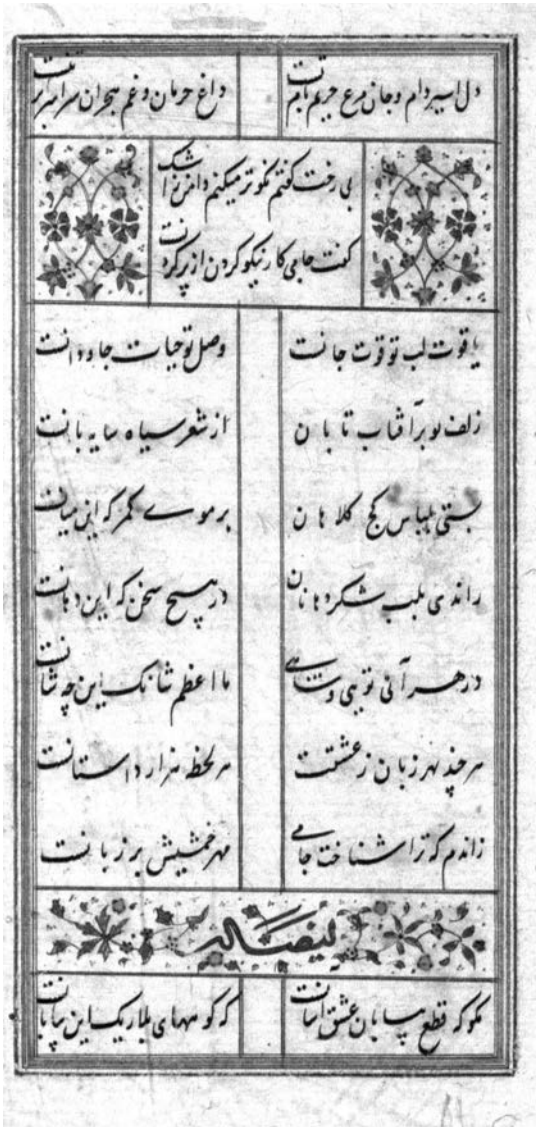 دل اسیر دام و جان مرغ حریم بام تست داغ حرمان و غم هجران سراسر
بی رخت گفتم نکو تر میکنم دامن ز اشک
گفت جامی کار نیکو کردن از پر کردنست
یاقوت لب تو قوت جانست وصل تو حیات جاودانست
زلف تو بر آفتاب تابان از شعر سیاه سایه بانست
بستی بلباس کج کلاهان بر موے کمر که این میانست
راندی بلب شکر دهانان در هیچ سخن که این دهانست
در هر آنی تویی و شانے ما اعظم شانک این چه شانست
هر چند بهر زبان ز عشقت هر لحظه هزار داستانست
زاندم که ترا شناخت جامے مهر خمشیش بر زبانست
ایضاله
مگو که قطع بیابان عشق آسانست که کوههای بلا ریک این بیابانست